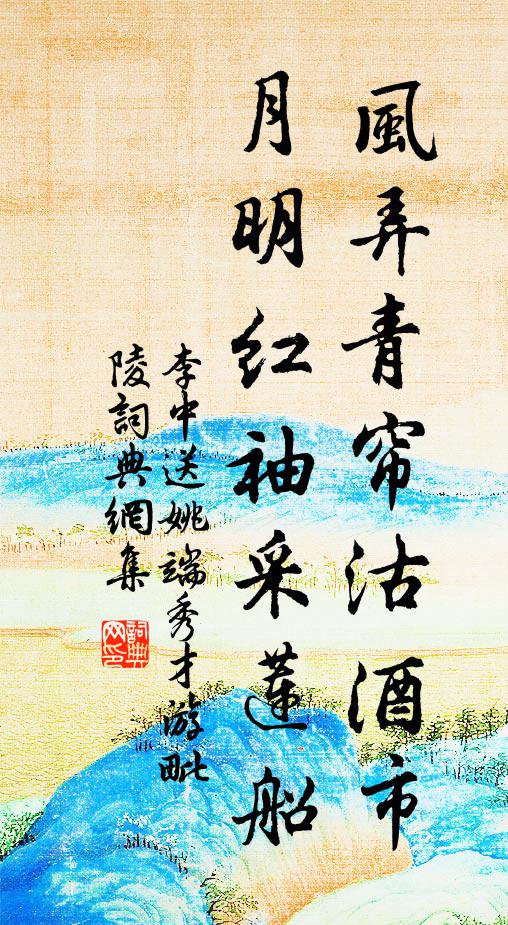 風弄青帘沽酒市
月明紅袖采蓮船
李中送姚端秀才游毗
陵詞典網集
詞典
网印